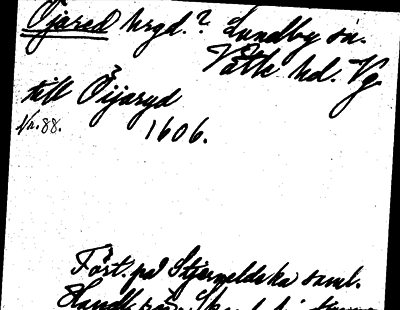 Öjared hrgd.? Lundby sn.
Vätle hd. Vg
till Öijaryd
1/10.88. 1606.
Fört. på Stjerneldska saml.
Handl.